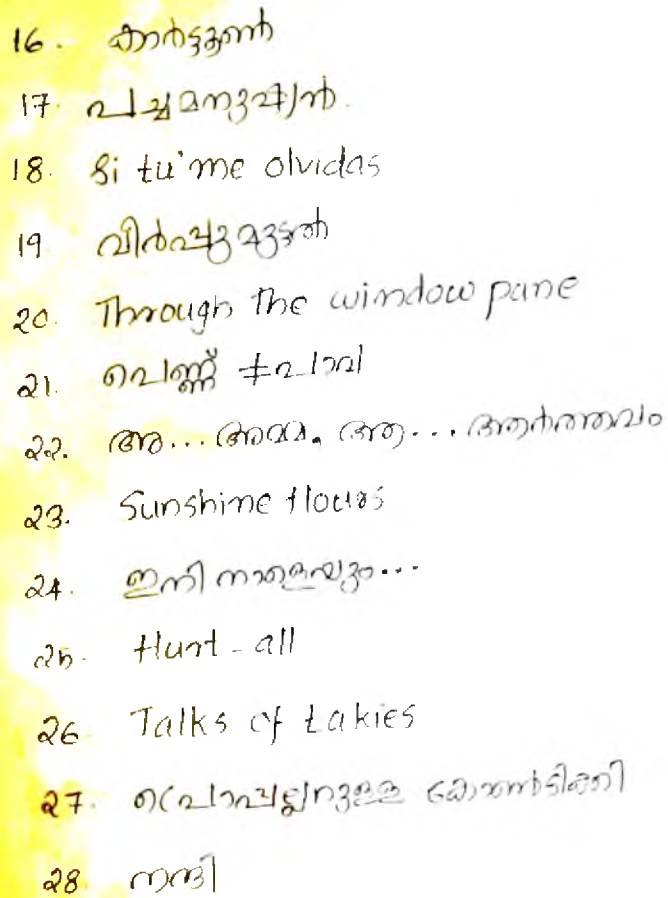 16. കാർട്ടൂൺ
17. പച്ചമനുഷ്യൻ.
18. Si tu'me olvidas
19 വിർപ്പുമുട്ടൽ
20. Through The window pane
21. പെണ്ണ് ≠ പാവ
22. അ... അമ്മ, ആ... ആർത്തവം
23. Sunshine Hours
24. ഇനി നാളെയും...
25. Hunt-all
26 Talks of takies
27. പ്രൊപ്പല്ലറുള്ള
28 നന്ദി